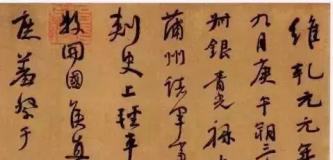 維乾元元年
九月庚午朔三
叔銀青光祿
蒲州諸軍事
刺史上輕車
縣開國侯真
庶羞祭于